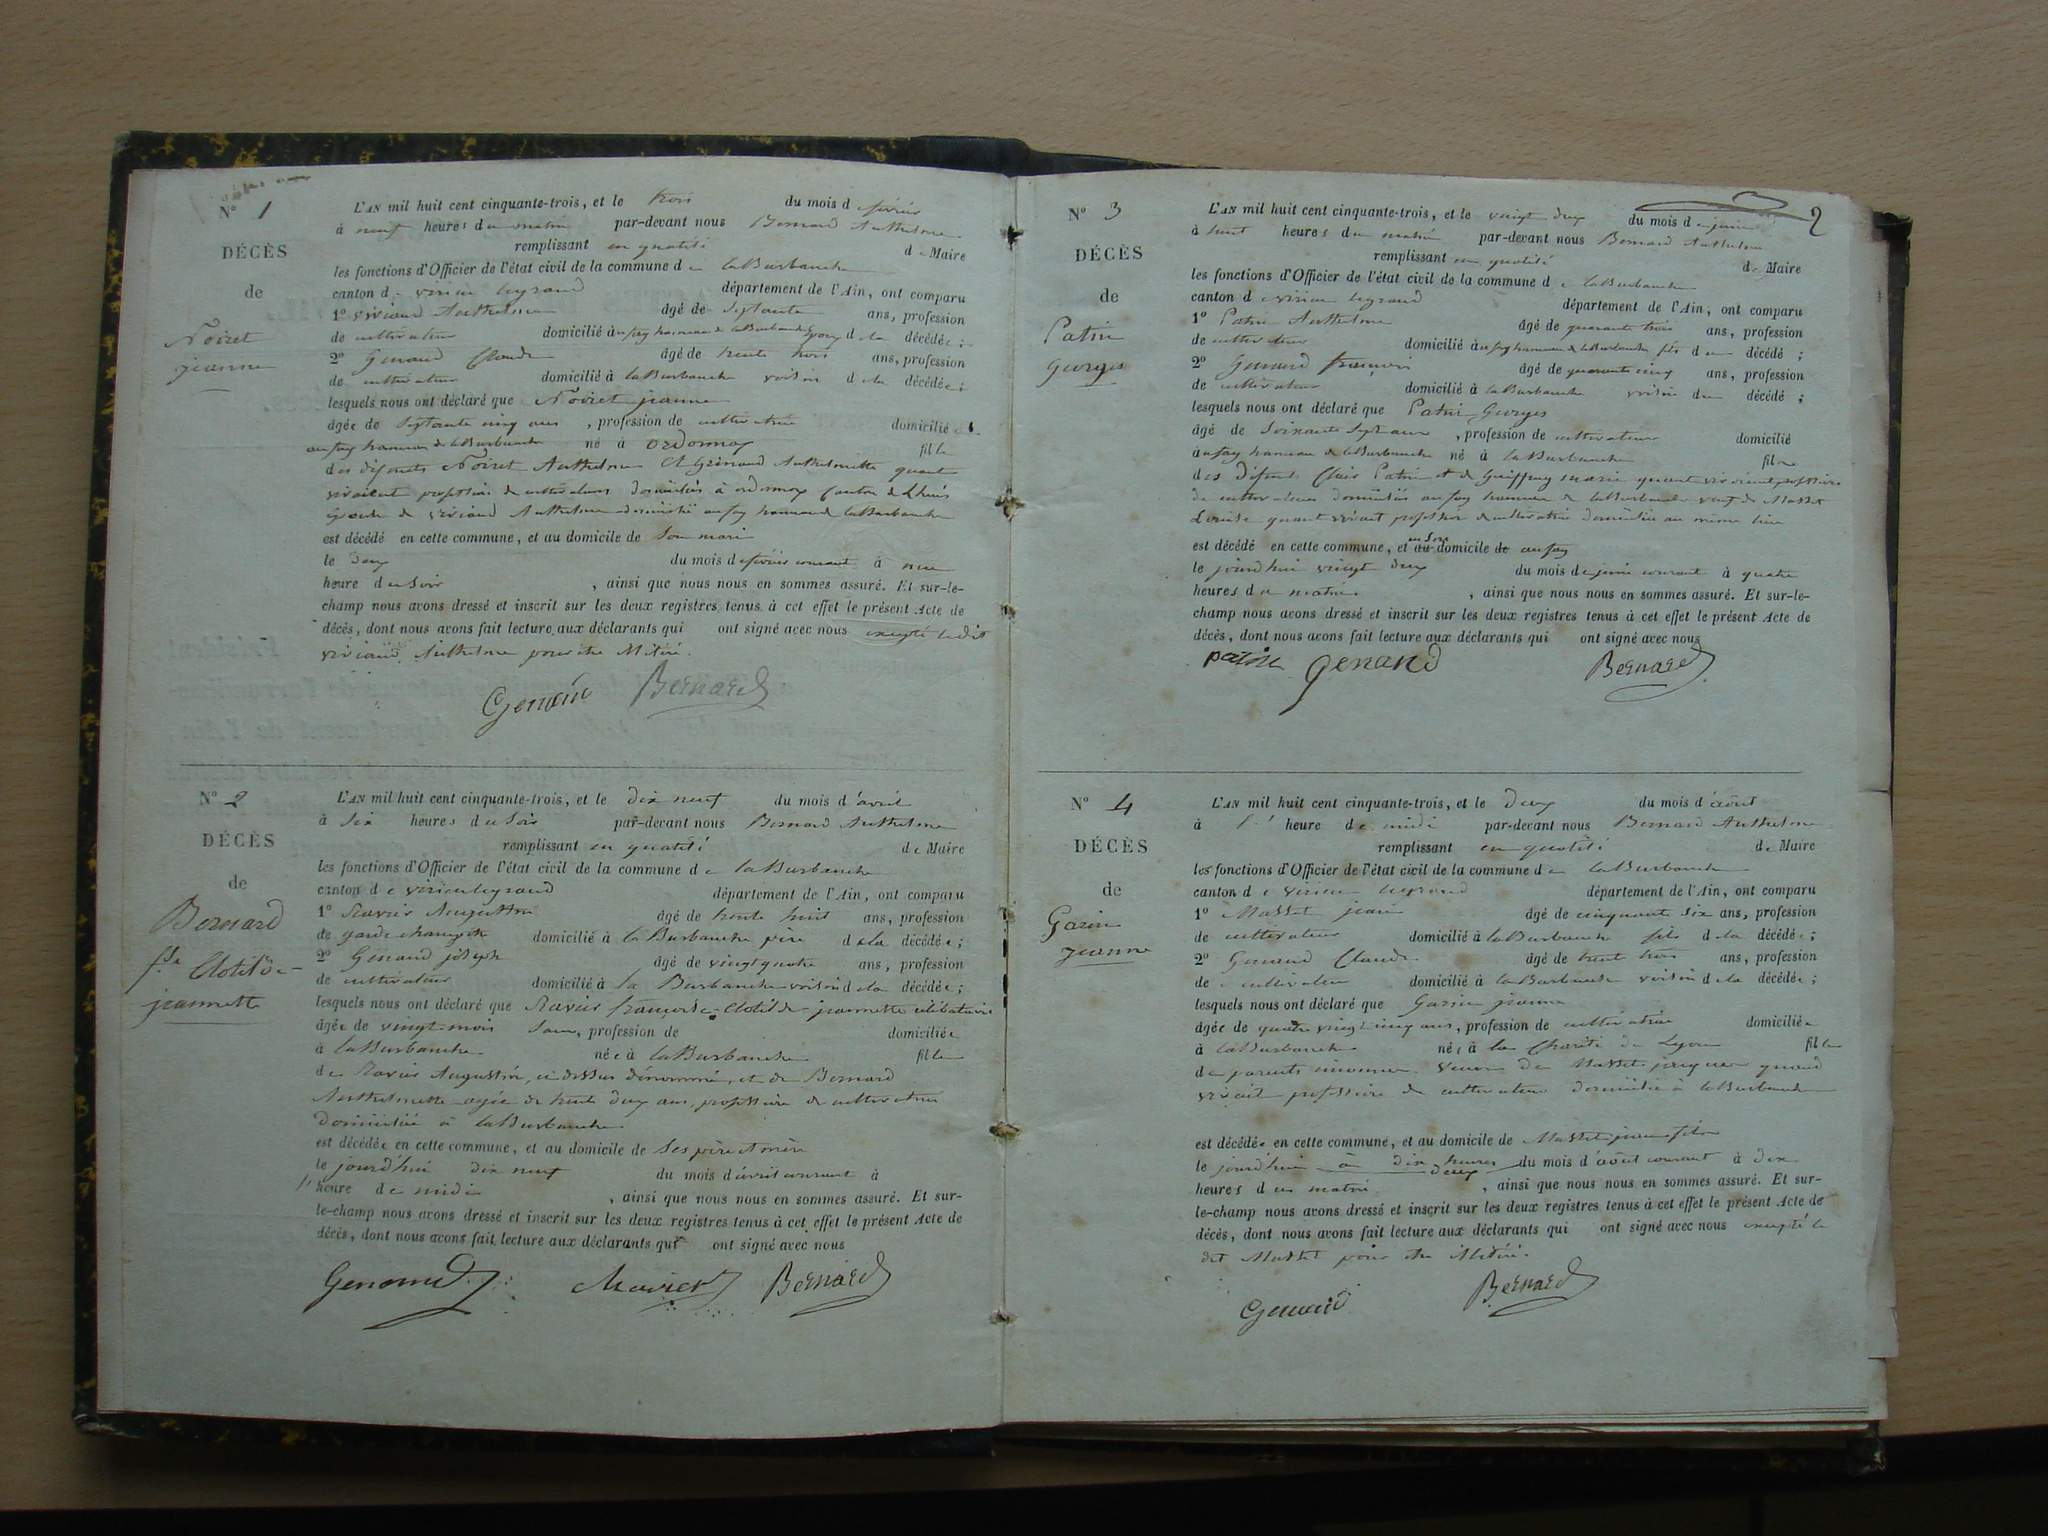 N° 1
DÉCÈS
de
Noiret
jeanne
L'AN mil huit cent cinquante-trois, et le trois du mois de février
à neuf heures du matin par-devant nous Bernard Anthelme
remplissant en qualité de Maire
les fonctions d'Officier de l'état civil de la commune de laBurbanche
canton de virieu legrand département de l'Ain, ont comparu
1° viviand Anthelme âgé de septante ans, profession
de cultivateur domicilié au fay hameau de laBurbanche Epoux de la décédée;
2° Genaud Claude âgé de trente trois ans, profession
de cultivateur domicilié à laBurbanche voisin de la décédée;
lesquels nous ont déclaré que Noiret jeanne
âgée de septante cinq ans, profession de cultivatrice domicilié
au fay hameau de laBurbanche né à ordonnaz fille
des défunts Noiret Anthelme Et Grinand Anthelmette quant
vivaient profession de cultivateurs domiciliés à ordonnaz Canton de Lhuis
épouse de viviand Anthelme domicilié au fay hameau de laBurbanche
est décédé en cette commune, et au domicile de son mari
le deux du mois de février courant à une
heure du soir, ainsi que nous nous en sommes assuré. Et sur-le-
champ nous avons dressé et inscrit sur les deux registres tenus à cet effet le présent Acte de
décès, dont nous avons fait lecture aux déclarants qui ont signé avec nous excepté ledit
viviand Anthelme pour être illitéré.
Genaud Bernard
N° 2
DÉCÈS
de
Bernard
fse Clotilde
jeannette
L'AN mil huit cent cinquante-trois, et le dix neuf du mois d'avril
à six heures du soir par-devant nous Bernard Anthelme
remplissant en qualité de Maire
les fonctions d'Officier de l'état civil de la commune de laBurbanche
canton de virieu legrand département de l'Ain, ont comparu
1° Ravier Augustin âgé de trente huit ans, profession
de garde champêtre domicilié à la Burbanche père de la décédée;
2° Genaud joseph âgé de vingt quatre ans, profession
de cultivateur domicilié à la Burbanche voisin de la décédée;
lesquels nous ont déclaré que Ravier françoise Clotilde jeannette célibataire
âgée de vingt mois sans, profession de domiciliée
à laBurbanche née à laBurbanche fille
de Ravier Augustin, ci dessus dénommé, et de Bernard
Anthelmette agée de trente deux ans, profession de cultivatrice
domiciliée à laBurbanche
est décédée en cette commune, et au domicile de ses père et mère
le jourd'hui dix neuf du mois d'avril courant à
heure de midi, ainsi que nous nous en sommes assuré. Et sur-
le-champ nous avons dressé et inscrit sur les deux registres tenus à cet effet le présent Acte de
décès, dont nous avons fait lecture aux déclarants qui ont signé avec nous
Genaud Bernard
2
N° 3
DÉCÈS
de
Patin
Georges
L'AN mil huit cent cinquante-trois, et le vingt deux du mois de juin
à huit heures du matin par-devant nous Bernard Anthelme
remplissant en qualité de Maire
les fonctions d'Officier de l'état civil de la commune de laBurbanche
canton de virieu legrand département de l'Ain, ont comparu
1° Patin Anthelme âgé de quarante trois ans, profession
de cultivateur domicilié au fay hameau de laBurbanche fils du décédé;
2° Genaud françois âgé de quarante cinq ans, profession
de cultivateur domicilié à laBurbanche voisin du décédé;
lesquels nous ont déclaré que Patin Georges
âgé de soixante sept ans, profession de cultivateur domicilié
au fay hameau de laBurbanche né à laBurbanche fils
des défunts Clair Patin et de marie quant vivaient profession
de cultivateurs domiciliés au fay hameau de laBurbanche veuf de Masset
Louise quant vivait profession de cultivatrice domiciliée au même lieu
est décédé en cette commune, et en son domicile au fay
le jourd'hui vingt deux du mois de juin courant à quatre
heures du matin, ainsi que nous nous en sommes assuré. Et sur-le-
champ nous avons dressé et inscrit sur les deux registres tenus à cet effet le présent Acte de
décès, dont nous avons fait lecture aux déclarants qui ont signé avec nous
patin Genaud Bernard
N° 4
DÉCÈS
de
Garin
jeanne
L'AN mil huit cent cinquante-trois, et le deux du mois d'août
à heure de midi par-devant nous Bernard Anthelme
remplissant en qualité de Maire
les fonctions d'Officier de l'état civil de la commune de laBurbanche
canton de virieu legrand département de l'Ain, ont comparu
1° Masset jean âgé de cinquante six ans, profession
de cultivateur domicilié à laBurbanche fils de la décédée;
2° Genaud Claude âgé de trente trois ans, profession
de cultivateur domicilié à laBurbanche voisin de la décédée;
lesquels nous ont déclaré que Garin jeanne
âgée de quatre vingt cinq ans, profession de cultivatrice domiciliée
à laBurbanche née à la Charité de Lyon fille
de parents inconnus veuve de Masset jacques quand
vivait profession de cultivateur domicilié à laBurbanche
est décédée en cette commune, et au domicile de Masset jean fils
le jourd'hui à dix heures deux du mois d'août courant à dix
heures du matin, ainsi que nous nous en sommes assuré. Et sur-
le-champ nous avons dressé et inscrit sur les deux registres tenus à cet effet le présent Acte de
décès, dont nous avons fait lecture aux déclarants qui ont signé avec nous excepté le
dit Masset pour être illitéré.
Genaud Bernard